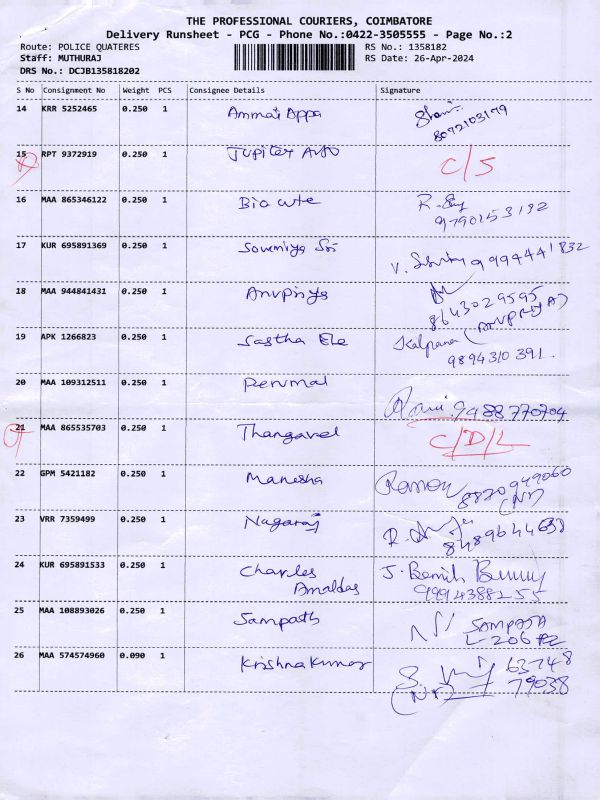 THE PROFESSIONAL COURIERS, COIMBATORE
Delivery Runsheet - PCG - Phone No.:0422-3505555 - Page No.:2
Route: POLICE QUATERES RS No.: 1358182
Staff: MUTHURAJ RS Date: 26-Apr-2024
DRS No.: DCJB135818202
S No Consignment No Weight PCS Consignee Details Signature
14 KRR 5252465 0.250 1 Ammai Appa
8072103179
15 RPT 9372919 0.250 1 Jupiter Auto C/S
16 MAA 865346122 0.250 1 Bio cute
9790153192
17 KUR 695891369 0.250 1 Sowmiya Sri
9994441832
18 MAA 944841431 0.250 1 Anupriya
8643029595
(ANUPRIYA)
19 APK 1266823 0.250 1 Sastha Ele Kalpana
9894310391
20 MAA 109312511 0.250 1 Perumal
9488770704
21 MAA 865535703 0.250 1 Thangavel C/D/L
22 GPM 5421182 0.250 1 Manesha
8820949060
(Nr)
23 VRR 7359499 0.250 1 Nagaraj
24 KUR 695891533 0.250 1 Charles
Arnaldas
9994388255
25 MAA 108893026 0.250 1 Sampath
26 MAA 574574960 0.090 1 Krishna Kumar 63748
79038
(Nr)